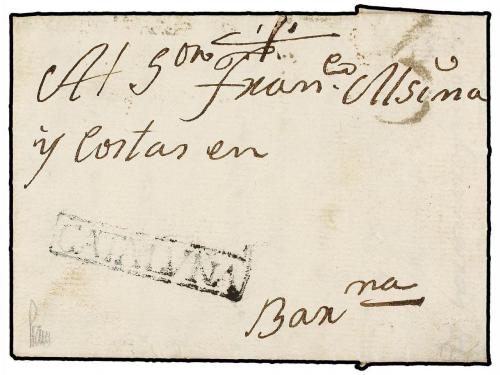 Al Sor Franco Alsina
y Costas en
CATALUÑA
Barna